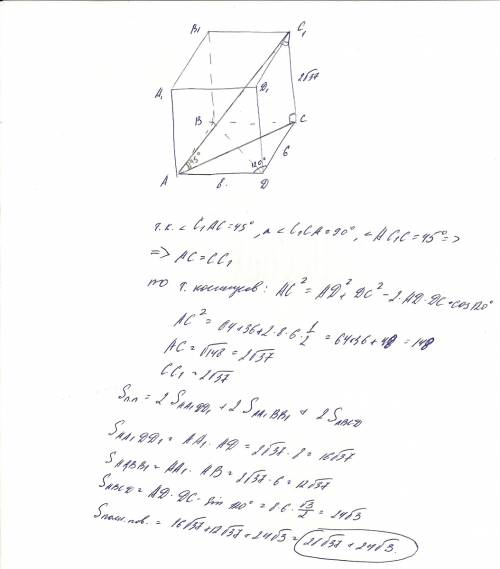 B₁
C₁
A₁
D₁
2√37
B
C
45°
120°
6
A
8.
D
т.к. < C₁AC = 45°, а < C₁CA = 90°, < AC₁C = 45° =>
=> AC = CC₁
по т. косинусов: AC² = AD² + DC² - 2·AD·DC·cos120°
AC² = 64+36+2·8·6·1/2 = 64+36+48 = 148
AC = √148 = 2√37
CC₁ = 2√37
Sпп = 2 SAA₁DD₁ + 2 SAA₁BB₁ + 2 SABCD
SAA₁DD₁ = AA₁ · AD = 2√37 · 8 = 16√37
SAABB₁ = AA₁ · AB = 2√37 · 6 = 12√37
SABCD = AD · DC · sin 120° = 8·6 · √3/2 = 24√3
Sполн.пов. = 16√37+12√37+24√3 = 28√37 + 24√3.